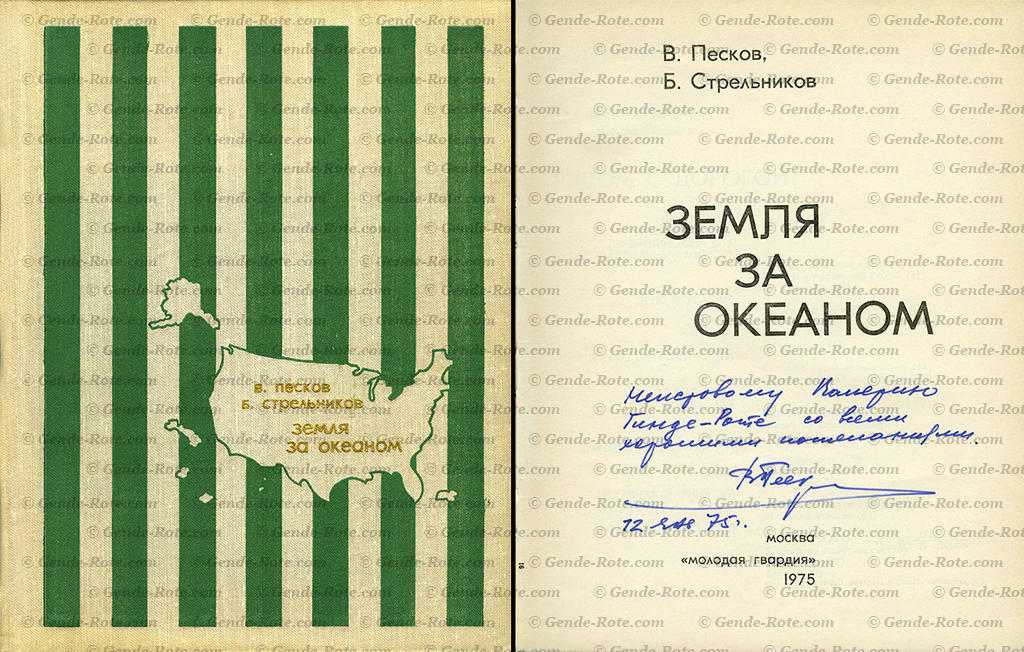 в. песков
б. стрельников
земля
за океаном
В. Песков,
Б. Стрельников
ЗЕМЛЯ
ЗА
ОКЕАНОМ
Неистовому Валерию
Генде-Роте со всеми
хорошими пожеланиями.
12 янв 75 г.
москва
«молодая гвардия»
1975
© Gende-Rote.com